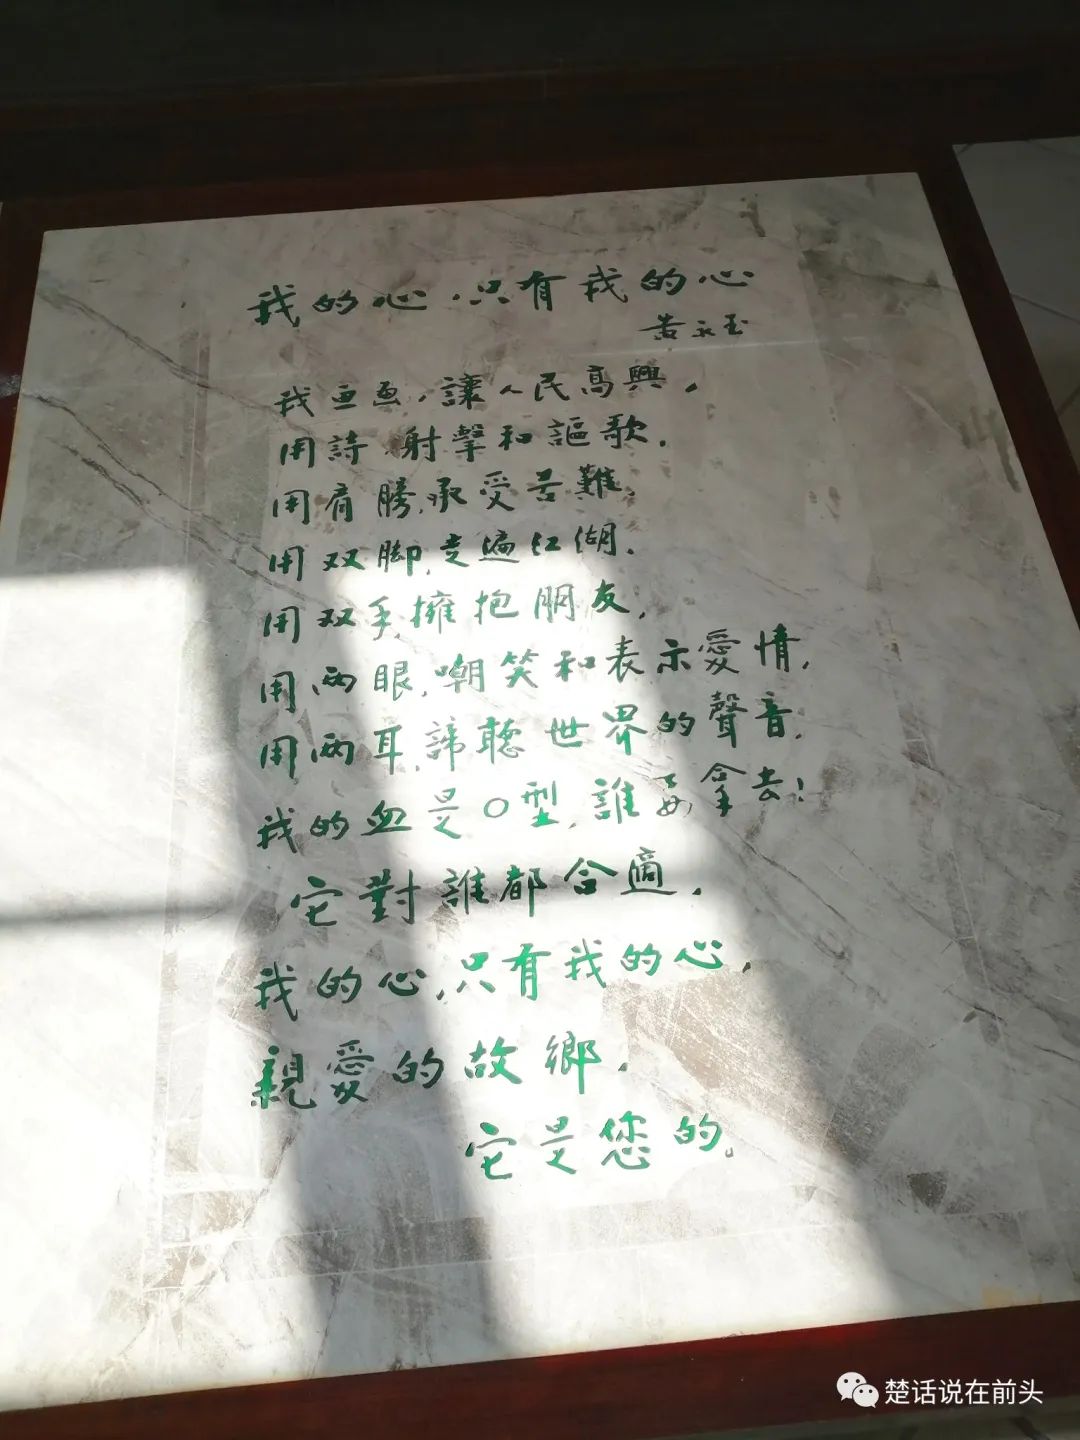 我的心,只有我的心
黄永玉
我画画,讓人民高興,
用詩,射擊和謳歌,
用肩膀,承受苦難,
用双脚,走遍江湖,
用双手,擁抱朋友,
用两眼,嘲笑和表示愛情,
用两耳,諦聽世界的聲音,
我的血是O型,誰要拿去!
它對誰都合適,
我的心,只有我的心,
親愛的故鄉,
它是您的。
楚话说在前头